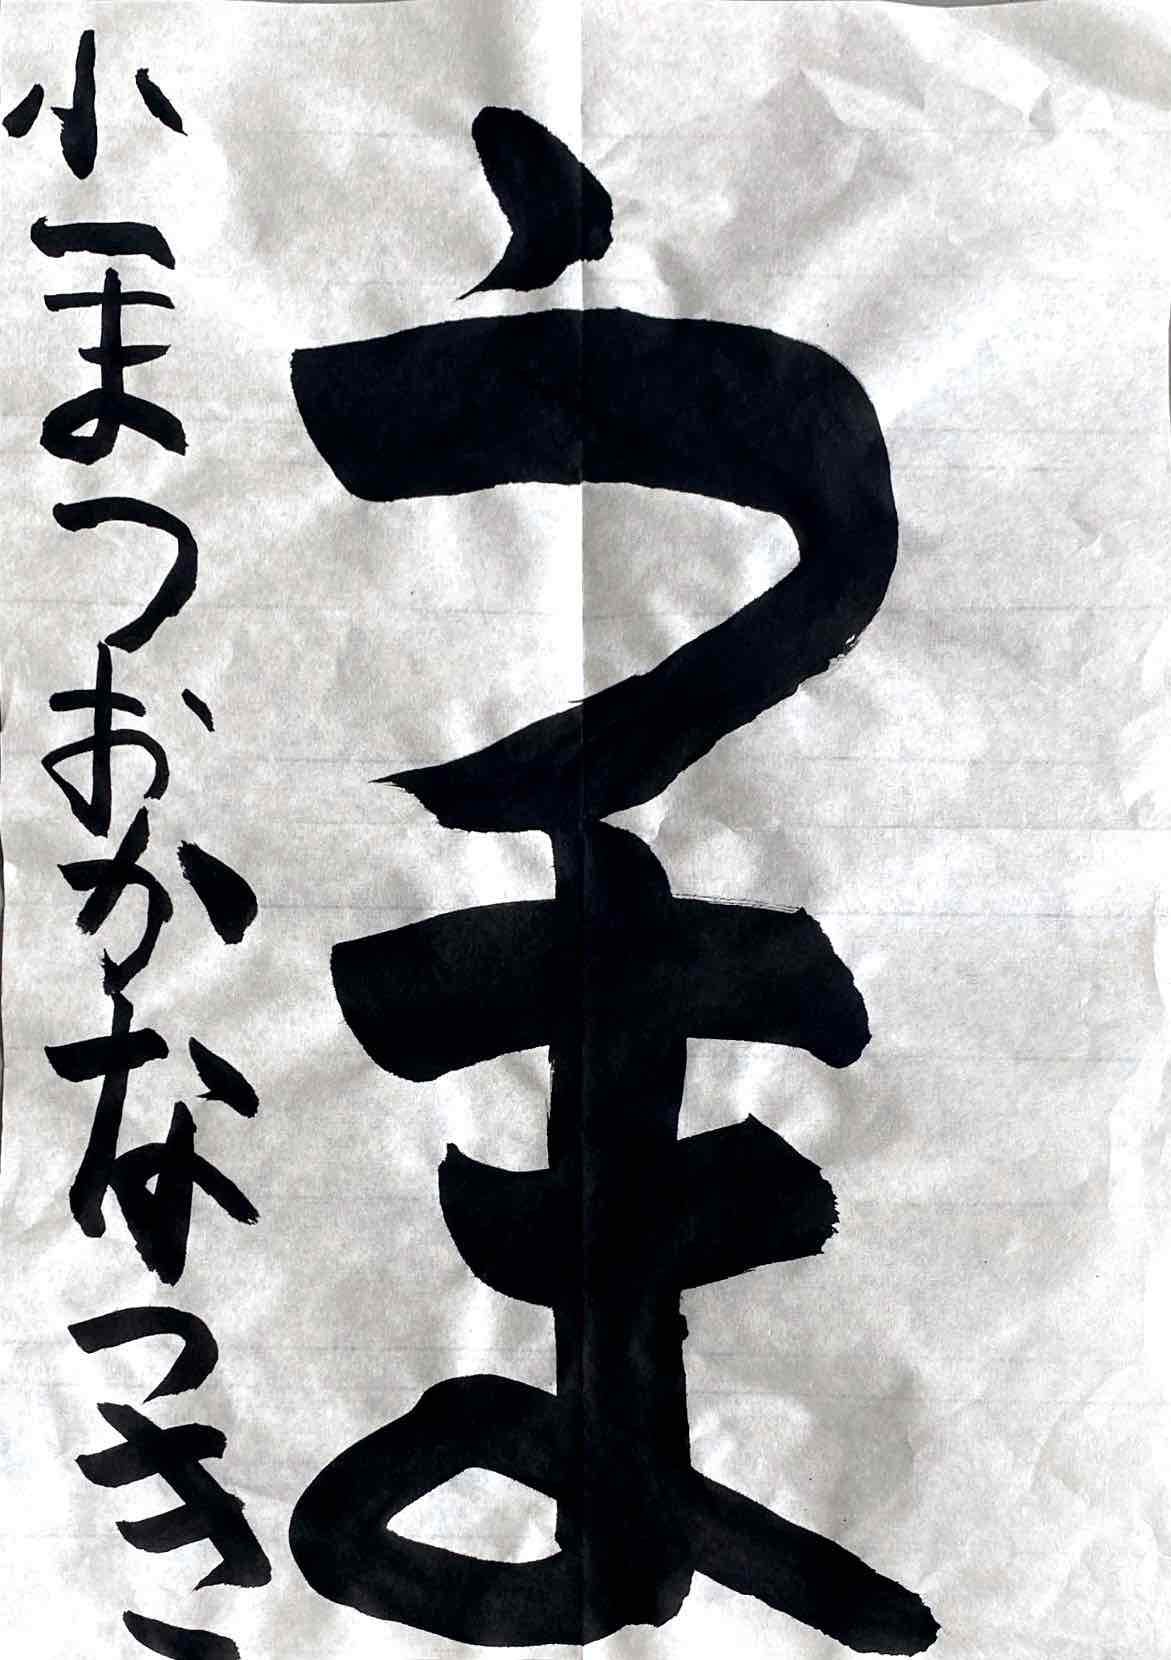 うま
小一まつおかなつき